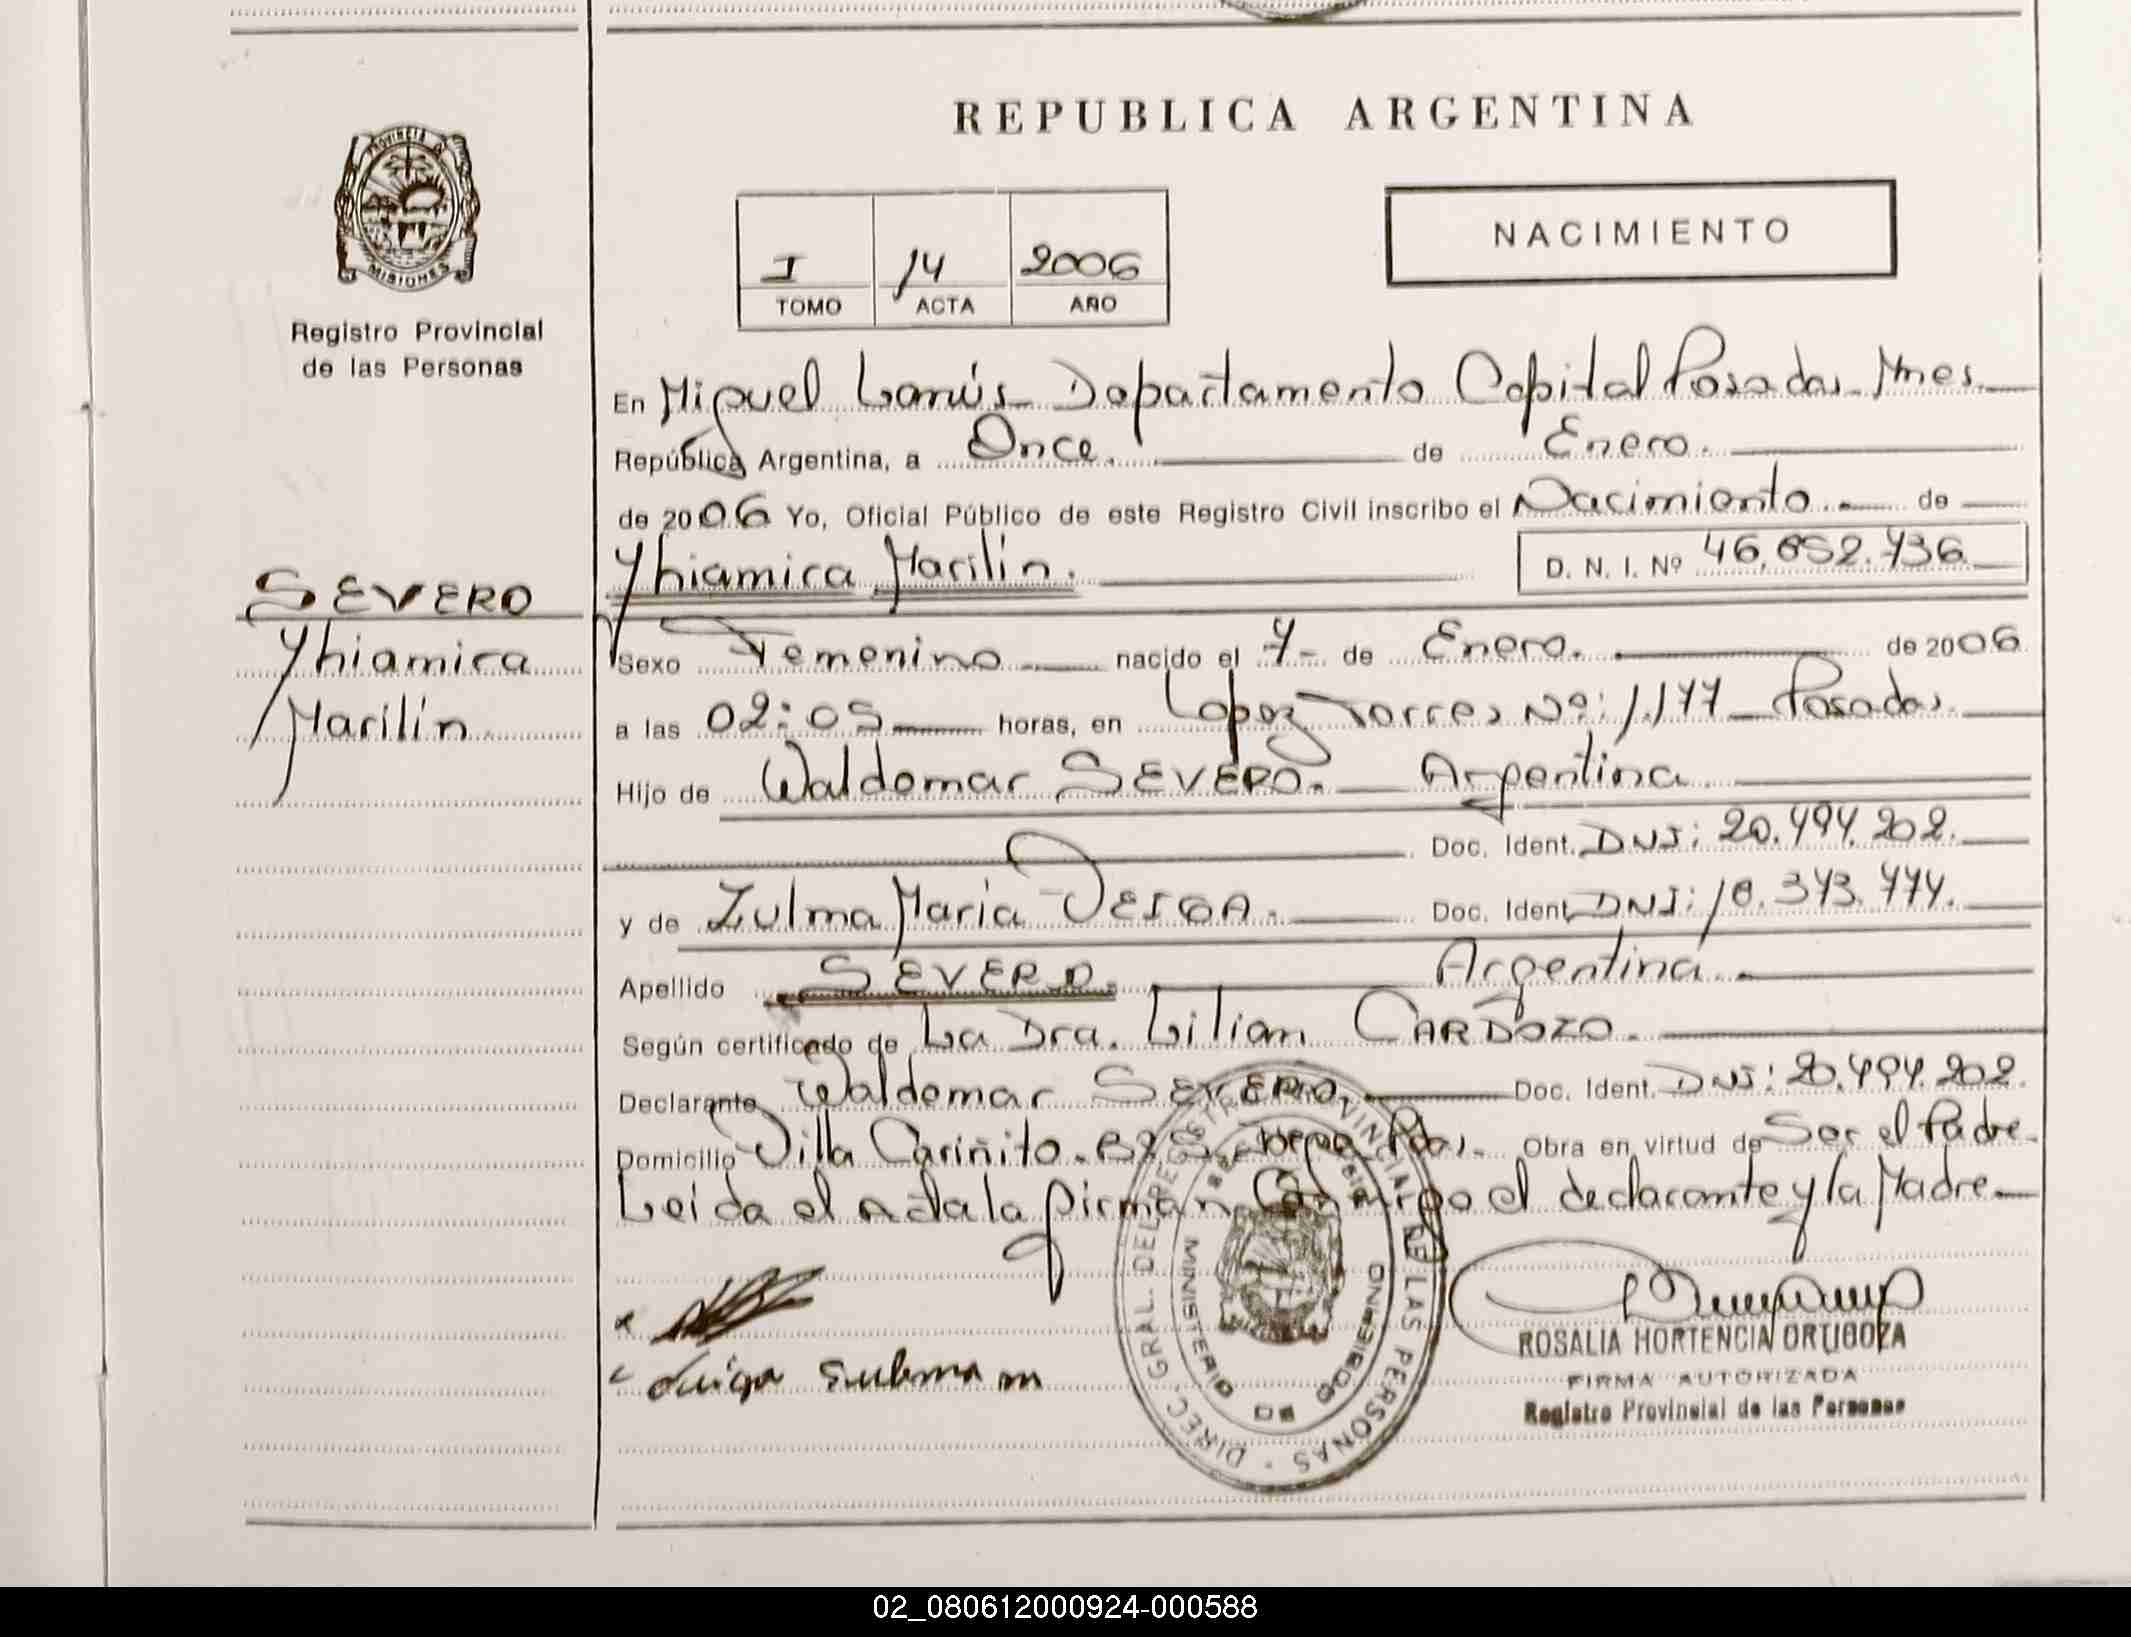 REPUBLICA ARGENTINA
PROVINCIA DE
MISIONES
Registro Provincial
de las Personas
I 14 2006
TOMO ACTA AÑO
NACIMIENTO
En Miguel Lanús Departamento Capital Posadas Mnes.
República Argentina, a Once. de Enero.
de 2006 Yo, Oficial Público de este Registro Civil inscribo el Nacimiento. de
Yhiamira Marilin.
D. N. I. Nº 46.852.736
SEVERO
Yhiamira
Marilin.
Sexo Femenino nacido el 7 de Enero. de 2006
a las 02:05 horas, en Lopez Torres Nº: 1.177 Posadas.
Hijo de Waldemar SEVERO. Argentina
Doc. Ident. DNI: 20.494.202.
y de Zulma Maria Doc. Ident. DNI: 18.373.774.
Apellido SEVERO. Argentina.
Según certificado de La Dra. Lilian CARDOZO.
Declarante Waldemar SEVERO. Doc. Ident. DNI: 20.494.202.
Domicilio Villa Cariñito. Pdas. Obra en virtud de Ser el Padre.
Leida el Acta la firman Conmigo el declarante y la Madre
DIREC. GRAL. DEL REGISTRO PROVINCIAL DE LAS PERSONAS
MINISTERIO DE GOBIERNO
ROSALIA HORTENCIA ORUBOZA
FIRMA AUTORIZADA
Registro Provincial de las Personas
02_080612000924-000588